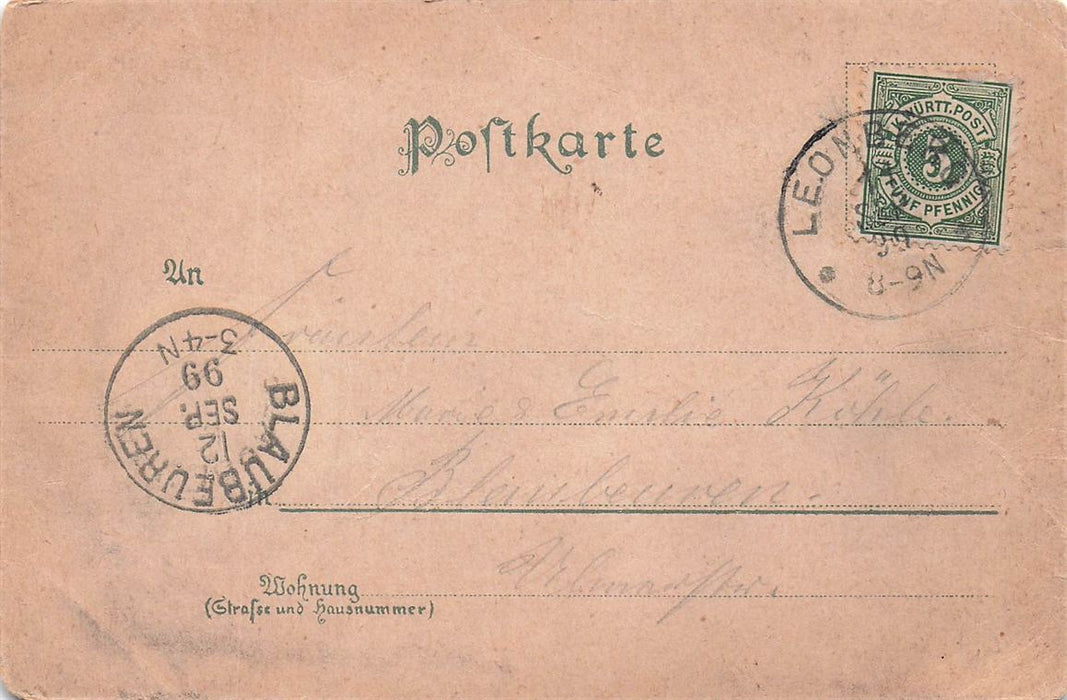 Postkarte
K. WÜRTT. POST
5
FÜNF PFENNIG
LEONB
8-9N
An
Fräulein
Marie & Emilie Köhle.
Blaubeuren.
BLAUBEUREN
12
SEP.
99
3-4N
Wohnung
(Strasse und Hausnummer)